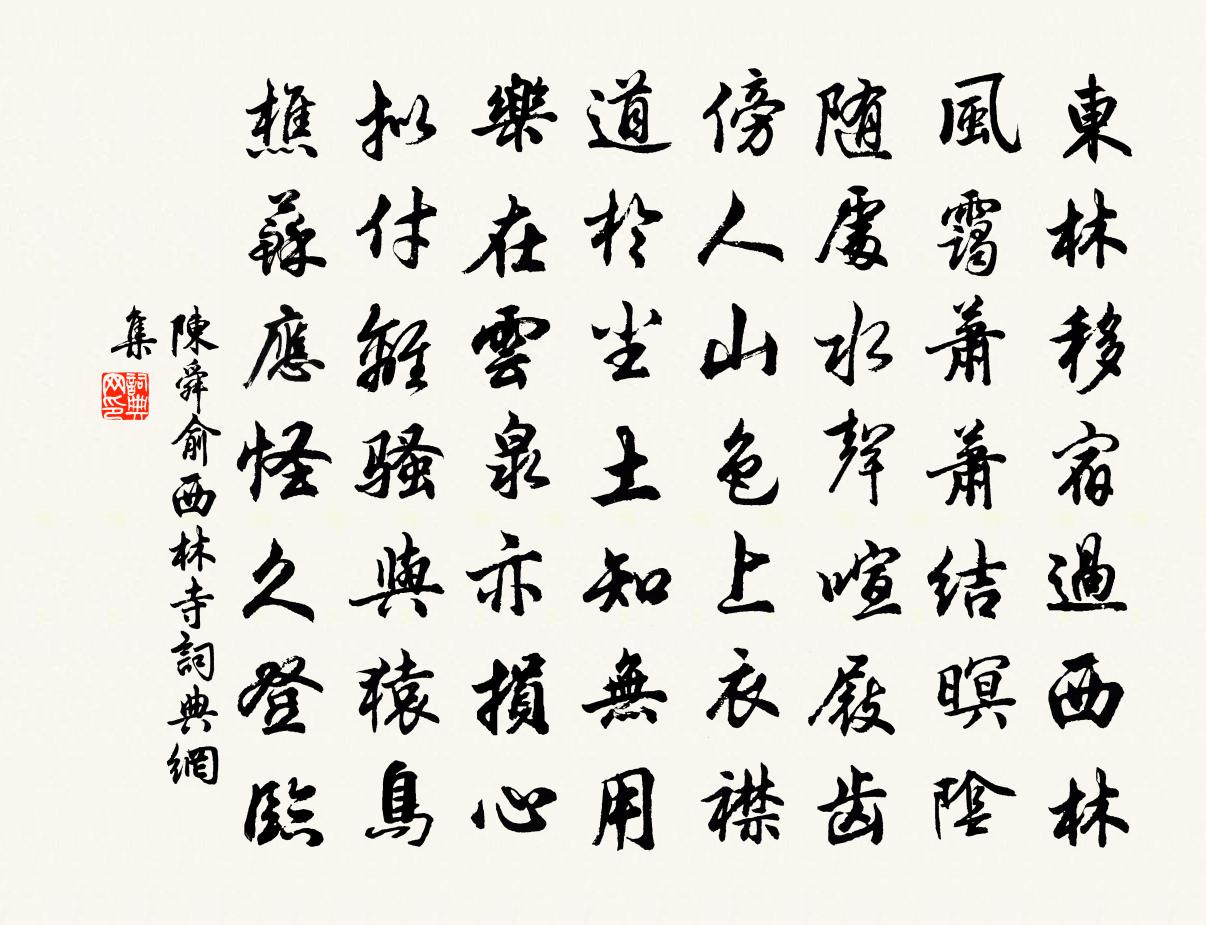 東林移宿過西林
風靄蕭蕭結暝陰
隨處水聲喧屐齒
傍人山色上衣襟
道於尘土知無用
樂在雲泉亦損心
拟付離騷與猿鳥
樵蘇應怪久登臨
陳舜俞西林寺詞典網
集
詞典网印